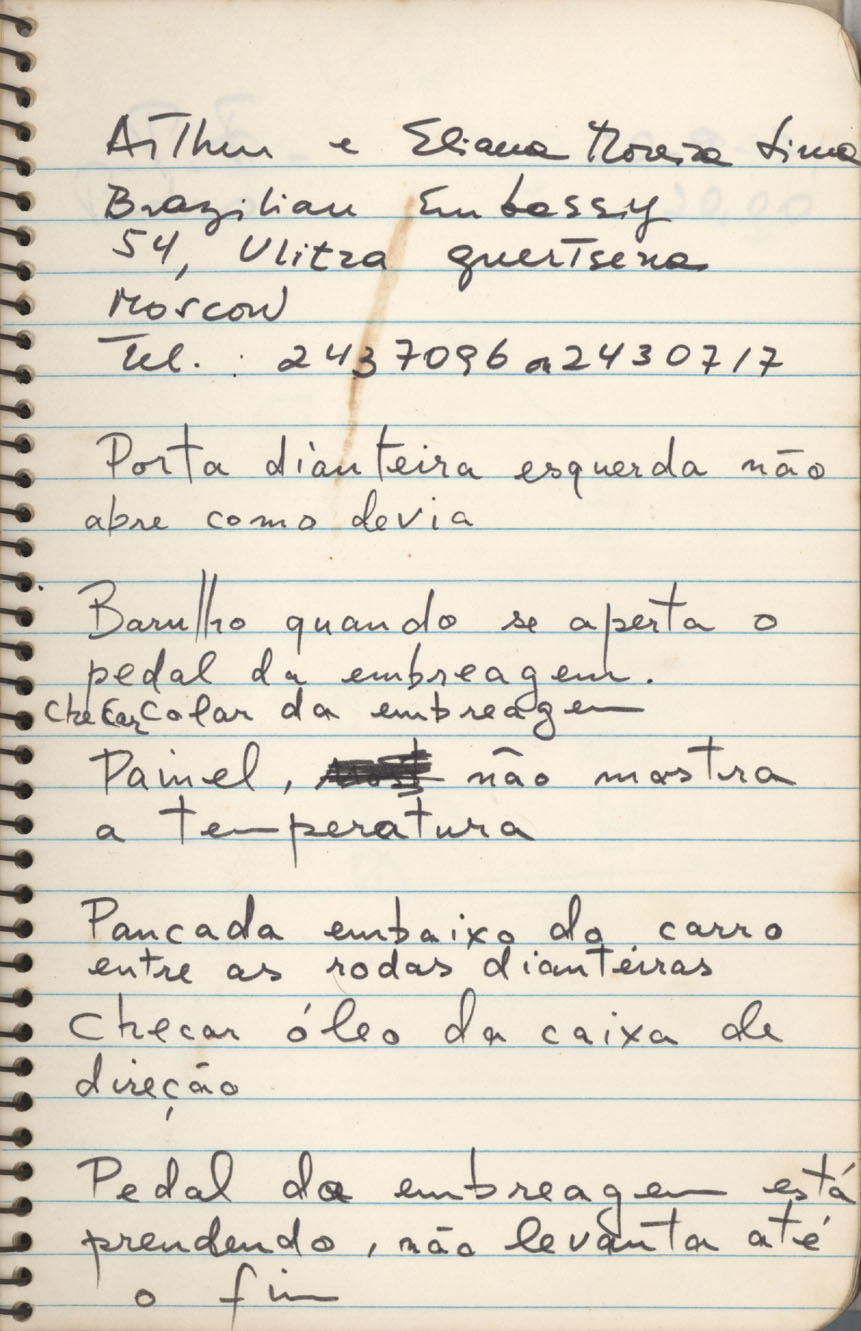 Arthur e Eliana Moreira Lima
Brazilian Embassy
54, Ulitza guertsena
Moscow
Tel. : 2437096 ou 2430717
Porta dianteira esquerda não
abre como devia
Barulho quando se aperta o
pedal da embreagem.
checar colar da embreagem
Painel, não mostra
a temperatura
Pancada embaixo do carro
entre as rodas dianteiras
Checar óleo da caixa de
direção
Pedal da embreagem está
prendendo, não levanta até
o fim